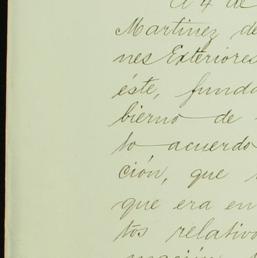 A 4 de
Martinez de
nes Exteriores
éste, funda
bierno de
to acuerdo
ción, que
que era en
tos relativo